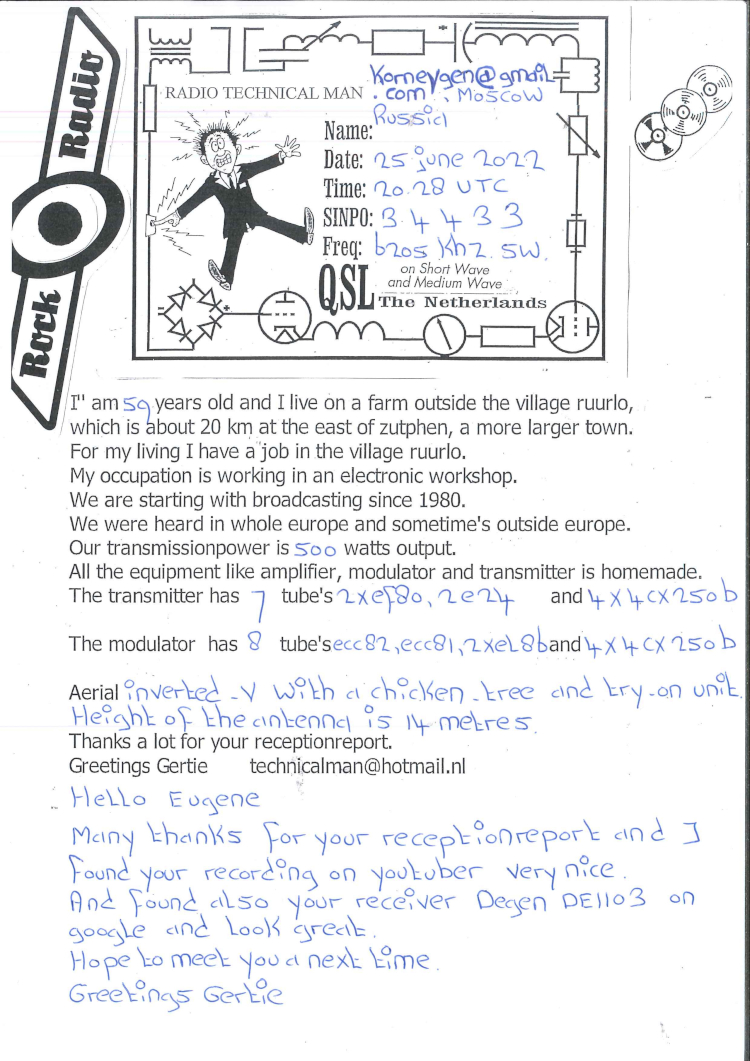 Rock Radio
RADIO TECHNICAL MAN
Korneygen@gmail
.com, Moscow
Russia
Name:
Date: 25 june 2022
Time: 20.28 UTC
SINPO: 3 4 4 3 3
Freq: 6205 khz. SW.
QSL on Short Wave
and Medium Wave
The Netherlands
I" am 59 years old and I live on a farm outside the village ruurlo,
which is about 20 km at the east of zutphen, a more larger town.
For my living I have a job in the village ruurlo.
My occupation is working in an electronic workshop.
We are starting with broadcasting since 1980.
We were heard in whole europe and sometime's outside europe.
Our transmissionpower is 500 watts output.
All the equipment like amplifier, modulator and transmitter is homemade.
The transmitter has 7 tube's 2xef80, 2e24 and 4x4cx250b
The modulator has 8 tube's ecc82,ecc81,2xeL86 and 4x4cx250b
Aerial inverted-V with a chicken-tree and try-on unit.
Height of the antenna is 14 metres.
Thanks a lot for your receptionreport.
Greetings Gertie technicalman@hotmail.nl
Hello Eugene
Many thanks for your receptionreport and I
found your recording on youtuber very nice.
And found also your receiver Degen DE1103 on
google and look great.
Hope to meet you a next time.
Greetings Gertie